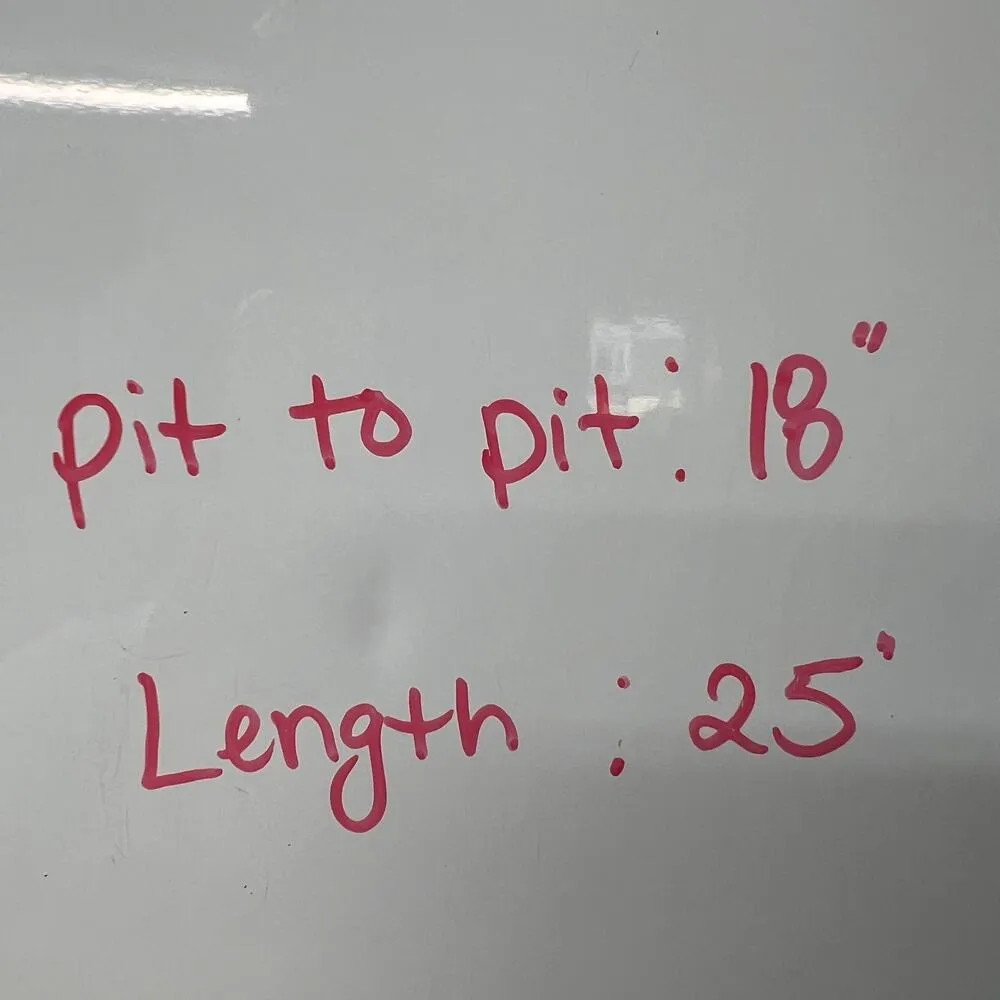 pit to pit: 18"
Length : 25"